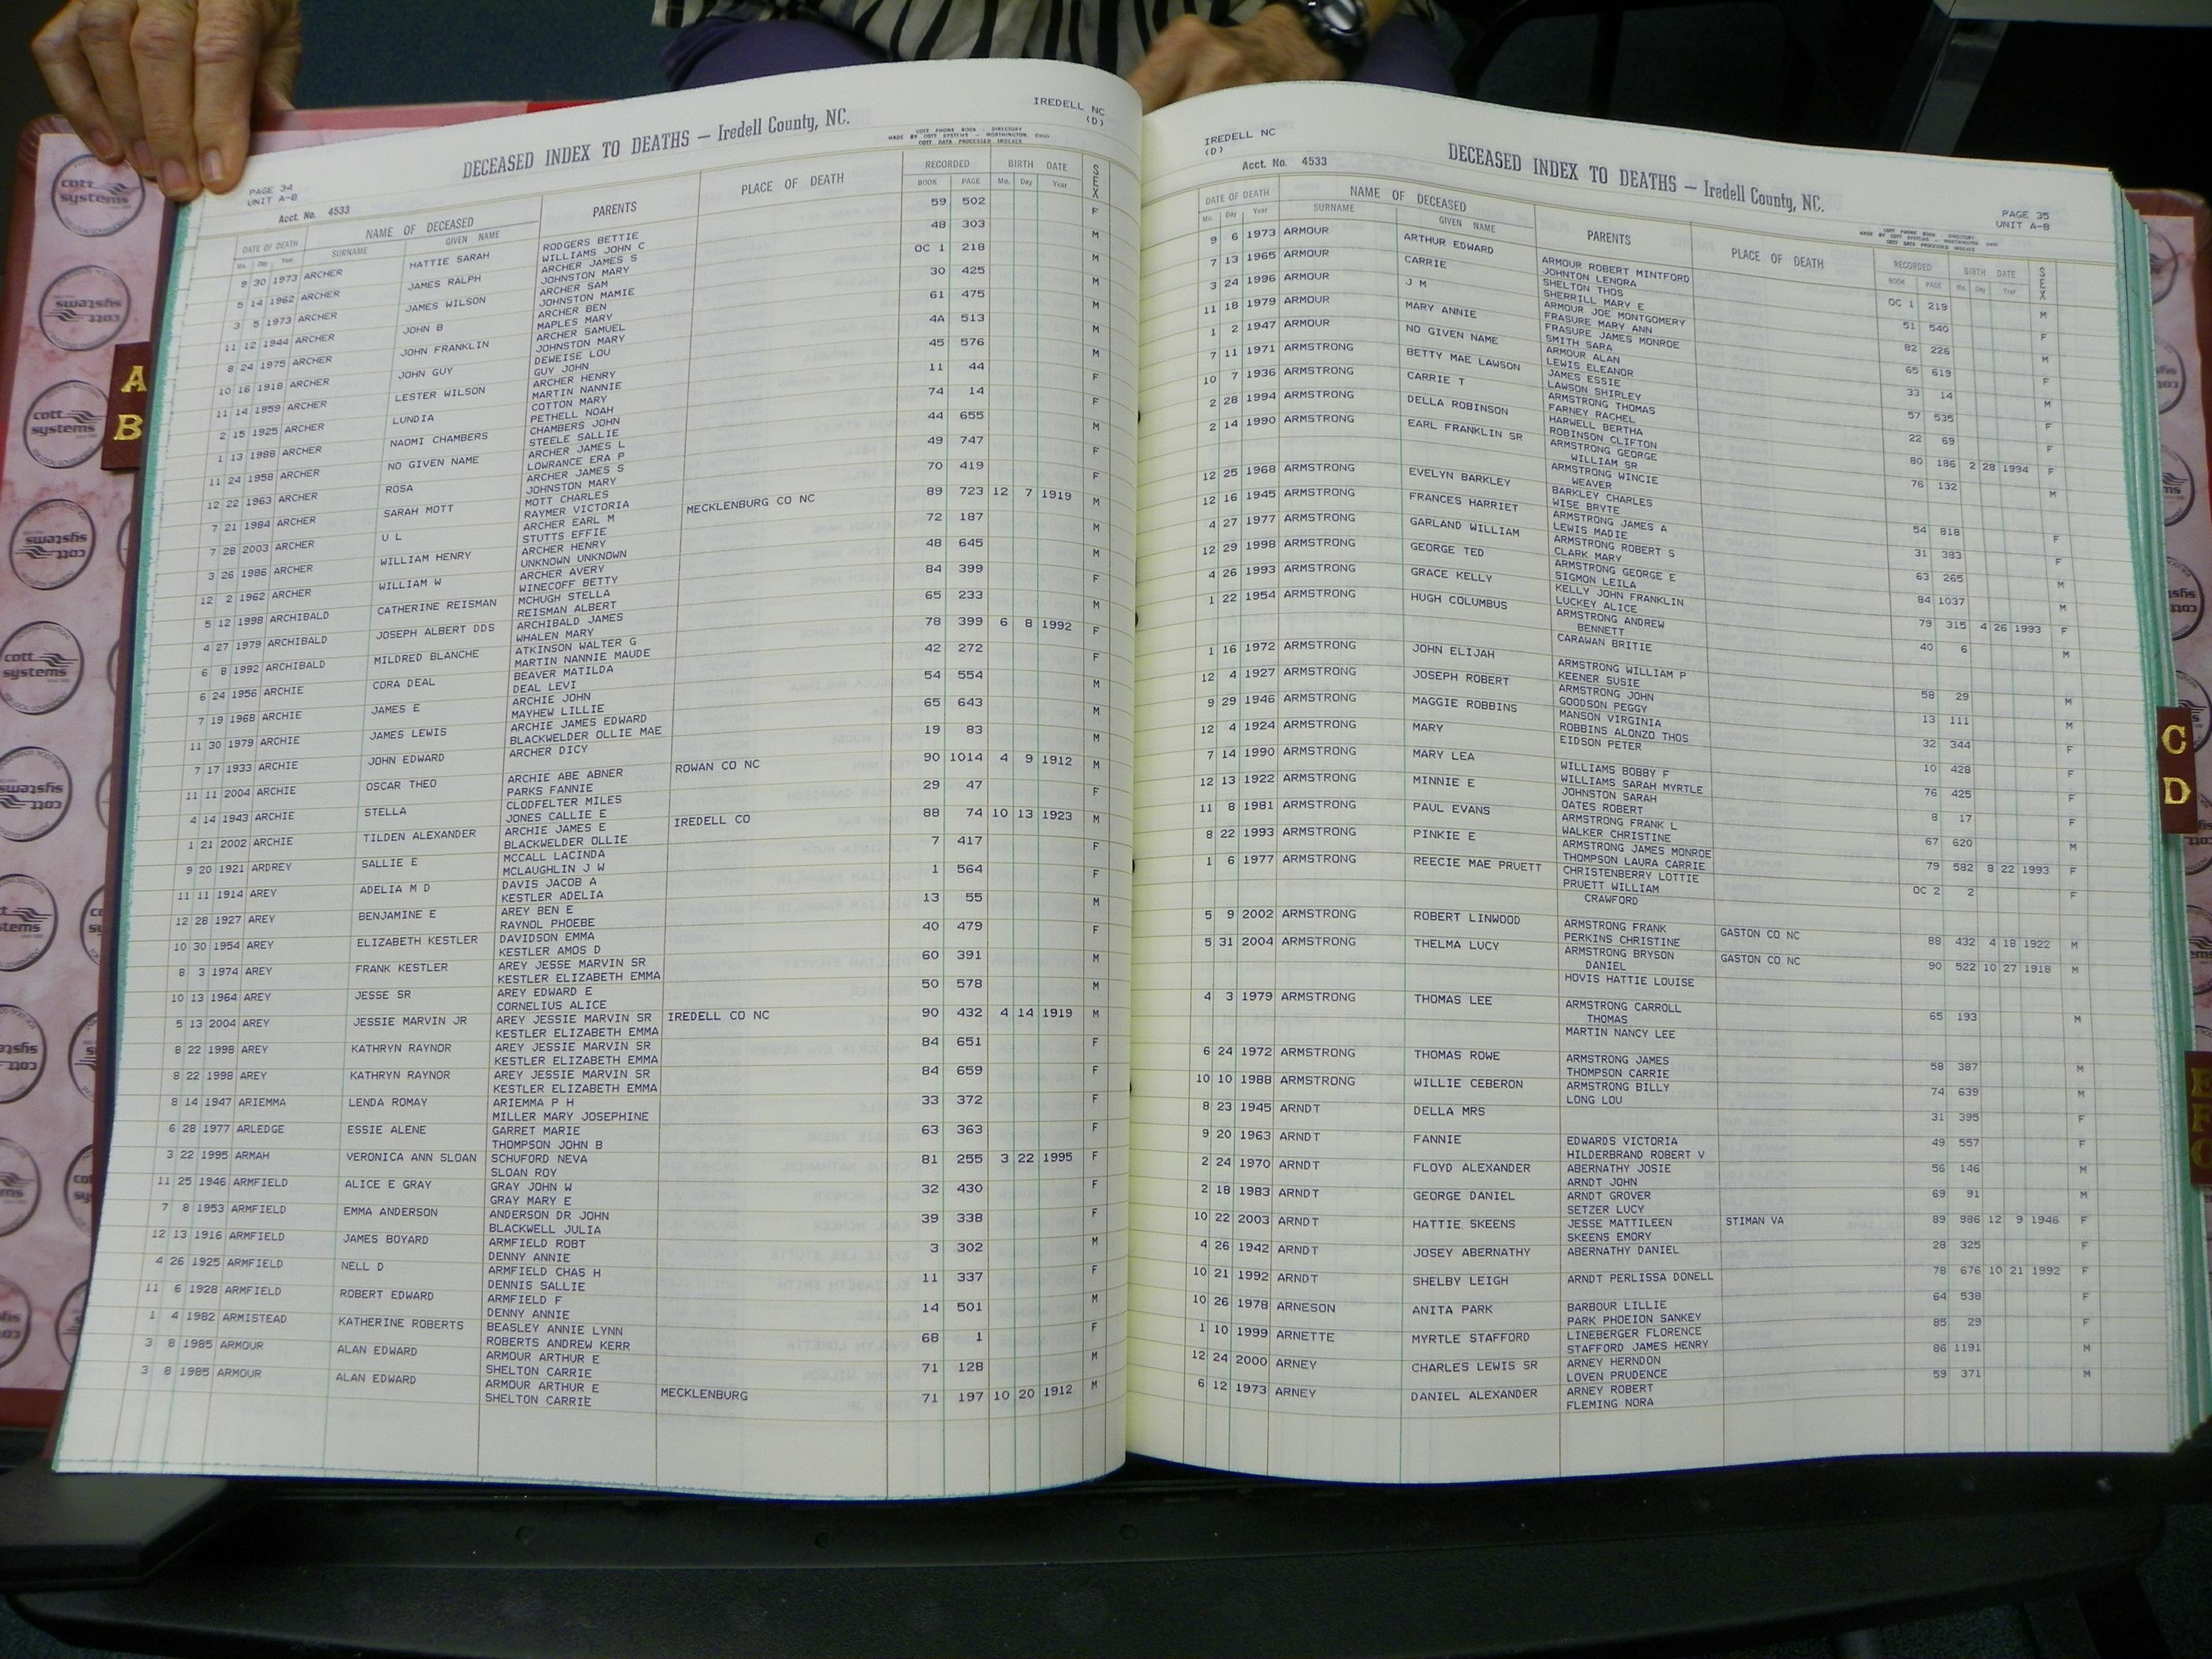 PAGE 34
UNIT A-B
DECEASED INDEX TO DEATHS — Iredell County, NC.
IREDELL NC
(D)
COTT PHONE BOOK - DIRECTORY
MADE BY COTT SYSTEMS - WORTHINGTON, OHIO
COTT DATA PROCESSED INDEXES
Acct. No. 4533
DATE OF DEATH NAME OF DECEASED PARENTS PLACE OF DEATH RECORDED BIRTH DATE SEX
Mo. Day Year SURNAME GIVEN NAME BOOK PAGE Mo. Day Year
9 30 1973 ARCHER HATTIE SARAH RODGERS BETTIE 59 502 F
WILLIAMS JOHN C
5 14 1962 ARCHER JAMES RALPH ARCHER JAMES S 48 303 M
JOHNSTON MARY
3 5 1973 ARCHER JAMES WILSON ARCHER SAM OC 1 218 M
JOHNSTON MAMIE
11 12 1944 ARCHER JOHN B ARCHER BEN 30 425 M
MAPLES MARY
8 24 1975 ARCHER JOHN FRANKLIN ARCHER SAMUEL 61 475 M
JOHNSTON MARY
10 16 1918 ARCHER JOHN GUY DEWEISE LOU 4A 513 M
GUY JOHN
11 14 1959 ARCHER LESTER WILSON ARCHER HENRY 45 576 M
MARTIN NANNIE
2 15 1925 ARCHER LUNDIA COTTON MARY 11 44 F
PETHELL NOAH
1 13 1988 ARCHER NAOMI CHAMBERS CHAMBERS JOHN 74 14 F
STEELE SALLIE
11 24 1958 ARCHER NO GIVEN NAME ARCHER JAMES L 44 655 M
LOWRANCE ERA P
12 22 1963 ARCHER ROSA ARCHER JAMES S 49 747 F
JOHNSTON MARY
7 21 1984 ARCHER SARAH MOTT MOTT CHARLES 70 419 F
RAYMER VICTORIA
7 28 2003 ARCHER U L ARCHER EARL M MECKLENBURG CO NC 89 723 12 7 1919 M
STUTTS EFFIE
3 26 1986 ARCHER WILLIAM HENRY ARCHER HENRY 72 187 M
UNKNOWN UNKNOWN
12 2 1962 ARCHER WILLIAM W ARCHER AVERY 48 645 M
WINECOFF BETTY
5 12 1998 ARCHIBALD CATHERINE REISMAN MCHUGH STELLA 84 399 F
REISMAN ALBERT
4 27 1979 ARCHIBALD JOSEPH ALBERT DDS ARCHIBALD JAMES 65 233 M
WHALEN MARY
6 8 1992 ARCHIBALD MILDRED BLANCHE ATKINSON WALTER G 78 399 6 8 1992 F
MARTIN NANNIE MAUDE
6 24 1956 ARCHIE CORA DEAL BEAVER MATILDA 42 272 F
DEAL LEVI
7 19 1968 ARCHIE JAMES E ARCHIE JOHN 54 554 M
MAYHEW LILLIE
11 30 1979 ARCHIE JAMES LEWIS ARCHIE JAMES EDWARD 65 643 M
BLACKWELDER OLLIE MAE
7 17 1933 ARCHIE JOHN EDWARD ARCHER DICY 19 83 M
11 11 2004 ARCHIE OSCAR THEO ARCHIE ABE ABNER ROWAN CO NC 90 1014 4 9 1912 M
PARKS FANNIE
4 14 1943 ARCHIE STELLA CLODFELTER MILES 29 47 F
JONES CALLIE E
1 21 2002 ARCHIE TILDEN ALEXANDER ARCHIE JAMES E IREDELL CO 88 74 10 13 1923 M
BLACKWELDER OLLIE
9 20 1921 ARDREY SALLIE E MCCALL LACINDA 7 417 F
MCLAUGHLIN J W
11 11 1914 AREY ADELIA M D DAVIS JACOB A 1 564 F
KESTLER ADELIA
12 28 1927 AREY BENJAMINE E AREY BEN E 13 55 M
RAYNOL PHOEBE
10 30 1954 AREY ELIZABETH KESTLER DAVIDSON EMMA 40 479 F
KESTLER AMOS D
8 3 1974 AREY FRANK KESTLER AREY JESSE MARVIN SR 60 391 M
KESTLER ELIZABETH EMMA
10 13 1964 AREY JESSE SR AREY EDWARD E 50 578 M
CORNELIUS ALICE
5 13 2004 AREY JESSIE MARVIN JR AREY JESSIE MARVIN SR IREDELL CO NC 90 432 4 14 1919 M
KESTLER ELIZABETH EMMA
8 22 1998 AREY KATHRYN RAYNOR AREY JESSIE MARVIN SR 84 651 F
KESTLER ELIZABETH EMMA
8 22 1998 AREY KATHRYN RAYNOR AREY JESSIE MARVIN SR 84 659 F
KESTLER ELIZABETH EMMA
8 14 1947 ARIEMMA LENDA ROMAY ARIEMMA P H 33 372 F
MILLER MARY JOSEPHINE
6 28 1977 ARLEDGE ESSIE ALENE GARRET MARIE 63 363 F
THOMPSON JOHN B
3 22 1995 ARMAH VERONICA ANN SLOAN SCHUFORD NEVA 81 255 3 22 1995 F
SLOAN ROY
11 25 1946 ARMFIELD ALICE E GRAY GRAY JOHN W 32 430 F
GRAY MARY E
7 8 1953 ARMFIELD EMMA ANDERSON ANDERSON DR JOHN 39 338 F
BLACKWELL JULIA
12 13 1916 ARMFIELD JAMES BOYARD ARMFIELD ROBT 3 302 M
DENNY ANNIE
4 26 1925 ARMFIELD NELL D ARMFIELD CHAS H 11 337 F
DENNIS SALLIE
11 6 1928 ARMFIELD ROBERT EDWARD ARMFIELD F 14 501 M
DENNY ANNIE
1 4 1982 ARMISTEAD KATHERINE ROBERTS BEASLEY ANNIE LYNN 68 1 F
ROBERTS ANDREW KERR
3 8 1985 ARMOUR ALAN EDWARD ARMOUR ARTHUR E 71 128 M
SHELTON CARRIE
3 8 1985 ARMOUR ALAN EDWARD ARMOUR ARTHUR E MECKLENBURG 71 197 10 20 1912 M
SHELTON CARRIE
IREDELL NC
(D)
Acct. No. 4533
DECEASED INDEX TO DEATHS — Iredell County, NC.
PAGE 35
UNIT A-B
COTT PHONE BOOK - DIRECTORY
MADE BY COTT SYSTEMS - WORTHINGTON, OHIO
COTT DATA PROCESSED INDEXES
DATE OF DEATH NAME OF DECEASED PARENTS PLACE OF DEATH RECORDED BIRTH DATE SEX
Mo. Day Year SURNAME GIVEN NAME BOOK PAGE Mo. Day Year
9 6 1973 ARMOUR ARTHUR EDWARD ARMOUR ROBERT MINTFORD OC 1 219 M
JOHNTON LENORA
7 13 1965 ARMOUR CARRIE SHELTON THOS 51 540 F
SHERRILL MARY E
3 24 1996 ARMOUR J M ARMOUR JOE MONTGOMERY 82 226 M
FRASURE MARY ANN
11 18 1979 ARMOUR MARY ANNIE FRASURE JAMES MONROE 65 619 F
SMITH SARA
1 2 1947 ARMOUR NO GIVEN NAME ARMOUR ALAN 33 14 M
LEWIS ELEANOR
7 11 1971 ARMSTRONG BETTY MAE LAWSON JAMES ESSIE 57 535 F
LAWSON SHIRLEY
10 7 1936 ARMSTRONG CARRIE T ARMSTRONG THOMAS 22 69 F
FARNEY RACHEL
2 28 1994 ARMSTRONG DELLA ROBINSON HARWELL BERTHA 80 186 2 28 1994 F
ROBINSON CLIFTON
2 14 1990 ARMSTRONG EARL FRANKLIN SR ARMSTRONG GEORGE 76 132 M
WILLIAM SR
ARMSTRONG WINCIE
WEAVER
12 25 1968 ARMSTRONG EVELYN BARKLEY BARKLEY CHARLES 54 818 F
WISE BRYTE
12 16 1945 ARMSTRONG FRANCES HARRIET ARMSTRONG JAMES A 31 383 F
LEWIS MADIE
4 27 1977 ARMSTRONG GARLAND WILLIAM ARMSTRONG ROBERT S 63 265 M
CLARK MARY
12 29 1998 ARMSTRONG GEORGE TED ARMSTRONG GEORGE E 84 1037 M
SIGMON LEILA
4 26 1993 ARMSTRONG GRACE KELLY KELLY JOHN FRANKLIN 79 315 4 26 1993 F
LUCKEY ALICE
1 22 1954 ARMSTRONG HUGH COLUMBUS ARMSTRONG ANDREW 40 6 M
BENNETT
CARAWAN BRITIE
1 16 1972 ARMSTRONG JOHN ELIJAH ARMSTRONG WILLIAM P 58 29 M
KEENER SUSIE
12 4 1927 ARMSTRONG JOSEPH ROBERT ARMSTRONG JOHN 13 111 M
GOODSON PEGGY
9 29 1946 ARMSTRONG MAGGIE ROBBINS MANSON VIRGINIA 32 344 F
ROBBINS ALONZO THOS
12 4 1924 ARMSTRONG MARY EIDSON PETER 10 428 F
7 14 1990 ARMSTRONG MARY LEA WILLIAMS BOBBY F 76 425 F
WILLIAMS SARAH MYRTLE
12 13 1922 ARMSTRONG MINNIE E JOHNSTON SARAH 8 17 F
OATES ROBERT
11 8 1981 ARMSTRONG PAUL EVANS ARMSTRONG FRANK L 67 620 M
WALKER CHRISTINE
8 22 1993 ARMSTRONG PINKIE E ARMSTRONG JAMES MONROE 79 582 8 22 1993 F
THOMPSON LAURA CARRIE
1 6 1977 ARMSTRONG REECIE MAE PRUETT CHRISTENBERRY LOTTIE OC 2 2 F
PRUETT WILLIAM
CRAWFORD
5 9 2002 ARMSTRONG ROBERT LINWOOD ARMSTRONG FRANK GASTON CO NC 88 432 4 18 1922 M
PERKINS CHRISTINE
5 31 2004 ARMSTRONG THELMA LUCY ARMSTRONG BRYSON GASTON CO NC 90 522 10 27 1918 M
DANIEL
HOVIS HATTIE LOUISE
4 3 1979 ARMSTRONG THOMAS LEE ARMSTRONG CARROLL 65 193 M
THOMAS
MARTIN NANCY LEE
6 24 1972 ARMSTRONG THOMAS ROWE ARMSTRONG JAMES 58 387 M
THOMPSON CARRIE
10 10 1988 ARMSTRONG WILLIE CEBERON ARMSTRONG BILLY 74 639 M
LONG LOU
8 23 1945 ARNDT DELLA MRS 31 395 F
9 20 1963 ARNDT FANNIE EDWARDS VICTORIA 49 557 F
HILDERBRAND ROBERT V
2 24 1970 ARNDT FLOYD ALEXANDER ABERNATHY JOSIE 56 146 M
ARNDT JOHN
2 18 1983 ARNDT GEORGE DANIEL ARNDT GROVER 69 91 M
SETZER LUCY
10 22 2003 ARNDT HATTIE SKEENS JESSE MATTILEEN STIMAN VA 89 986 12 9 1946 F
SKEENS EMORY
4 26 1942 ARNDT JOSEY ABERNATHY ABERNATHY DANIEL 28 325 F
10 21 1992 ARNDT SHELBY LEIGH ARNDT PERLISSA DONELL 78 676 10 21 1992 F
10 26 1978 ARNESON ANITA PARK BARBOUR LILLIE 64 538 F
PARK PHOEION SANKEY
1 10 1999 ARNETTE MYRTLE STAFFORD LINEBERGER FLORENCE 85 29 F
STAFFORD JAMES HENRY
12 24 2000 ARNEY CHARLES LEWIS SR ARNEY HERNDON 86 1191 M
LOVEN PRUDENCE
6 12 1973 ARNEY DANIEL ALEXANDER ARNEY ROBERT 59 371 M
FLEMING NORA
A
B
C
D
cott systems